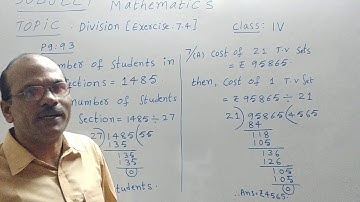 SUBJECT Mathematics
TOPIC : Division [Exercise-7.4] Class: IV
Pg. 93
number of Students in
Sections = 1485
number of Students
Section = 1485÷27
27)1485(55
135
135
135
0
Students.
7/(A) Cost of 21 T.V Sets
= ₹95865
then, Cost of 1 T.V Set
= ₹95865÷21
21)95865(4565
84
118
105
136
126
105
105
0
∴Ans=₹4565.